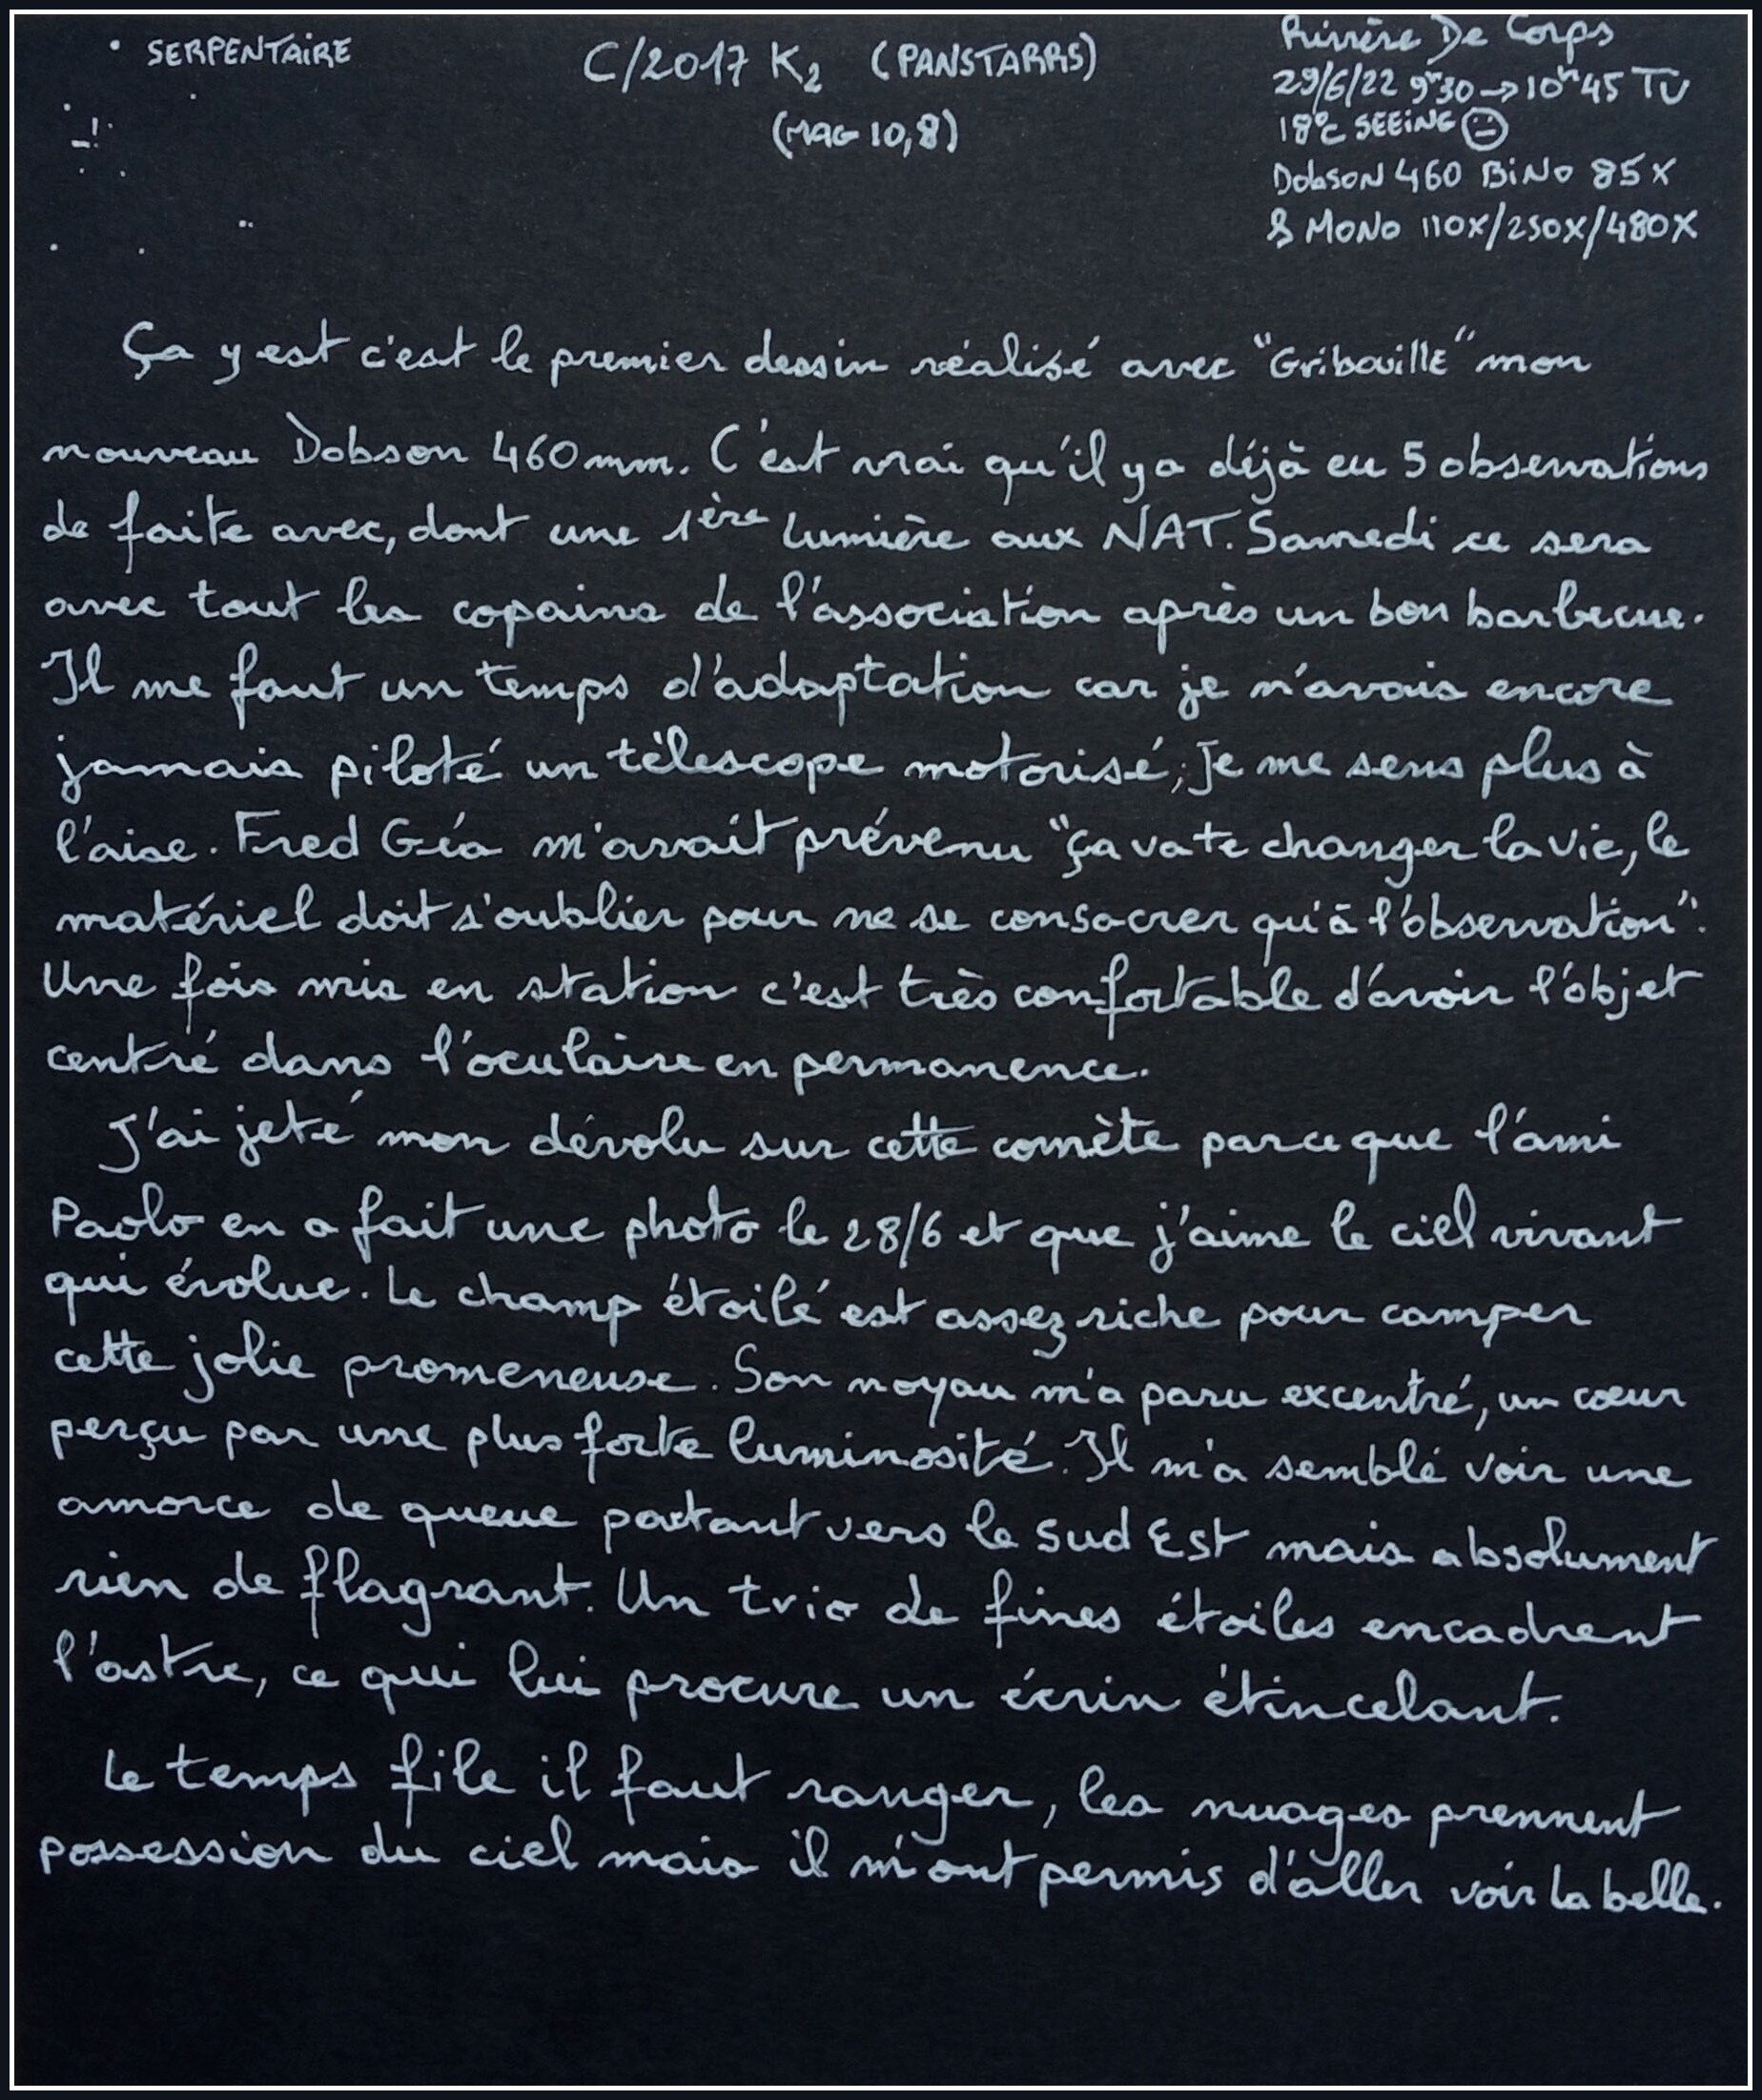 SERPENTAIRE
C/2017 K2 (PANSTARRS)
(MAG 10,8)
Rivière De Corps
29/6/22 9h30 → 10h45 TU
18°C SEEING 😐
Dobson 460 BiNo 85x
& MONO 110x/250x/480x
Ça y est c'est le premier dessin réalisé avec "Gribouille" mon
nouveau Dobson 460mm. C'est vrai qu'il y a déjà eu 5 observations
de faite avec, dont une 1ère lumière aux NAT. Samedi ce sera
avec tout les copains de l'association après un bon barbecue.
Il me faut un temps d'adaptation car je n'avais encore
jamais piloté un télescope motorisé, je me sens plus à
l'aise. Fred Géa m'avait prévenu "ça va te changer la vie, le
matériel doit s'oublier pour ne se consacrer qu'à l'observation".
Une fois mis en station c'est très confortable d'avoir l'objet
centré dans l'oculaire en permanence.
J'ai jeté mon dévolu sur cette comète parce que l'ami
Paolo en a fait une photo le 28/6 et que j'aime le ciel vivant
qui évolue. Le champ étoilé est assez riche pour camper
cette jolie promeneuse. Son noyau m'a paru excentré, un cœur
perçu par une plus forte luminosité. Il m'a semblé voir une
amorce de queue partant vers le sud Est mais absolument
rien de flagrant. Un trio de fines étoiles encadrent
l'astre, ce qui lui procure un écrin étincelant.
Le temps file il faut ranger, les nuages prennent
possession du ciel mais il m'ont permis d'aller voir la belle.